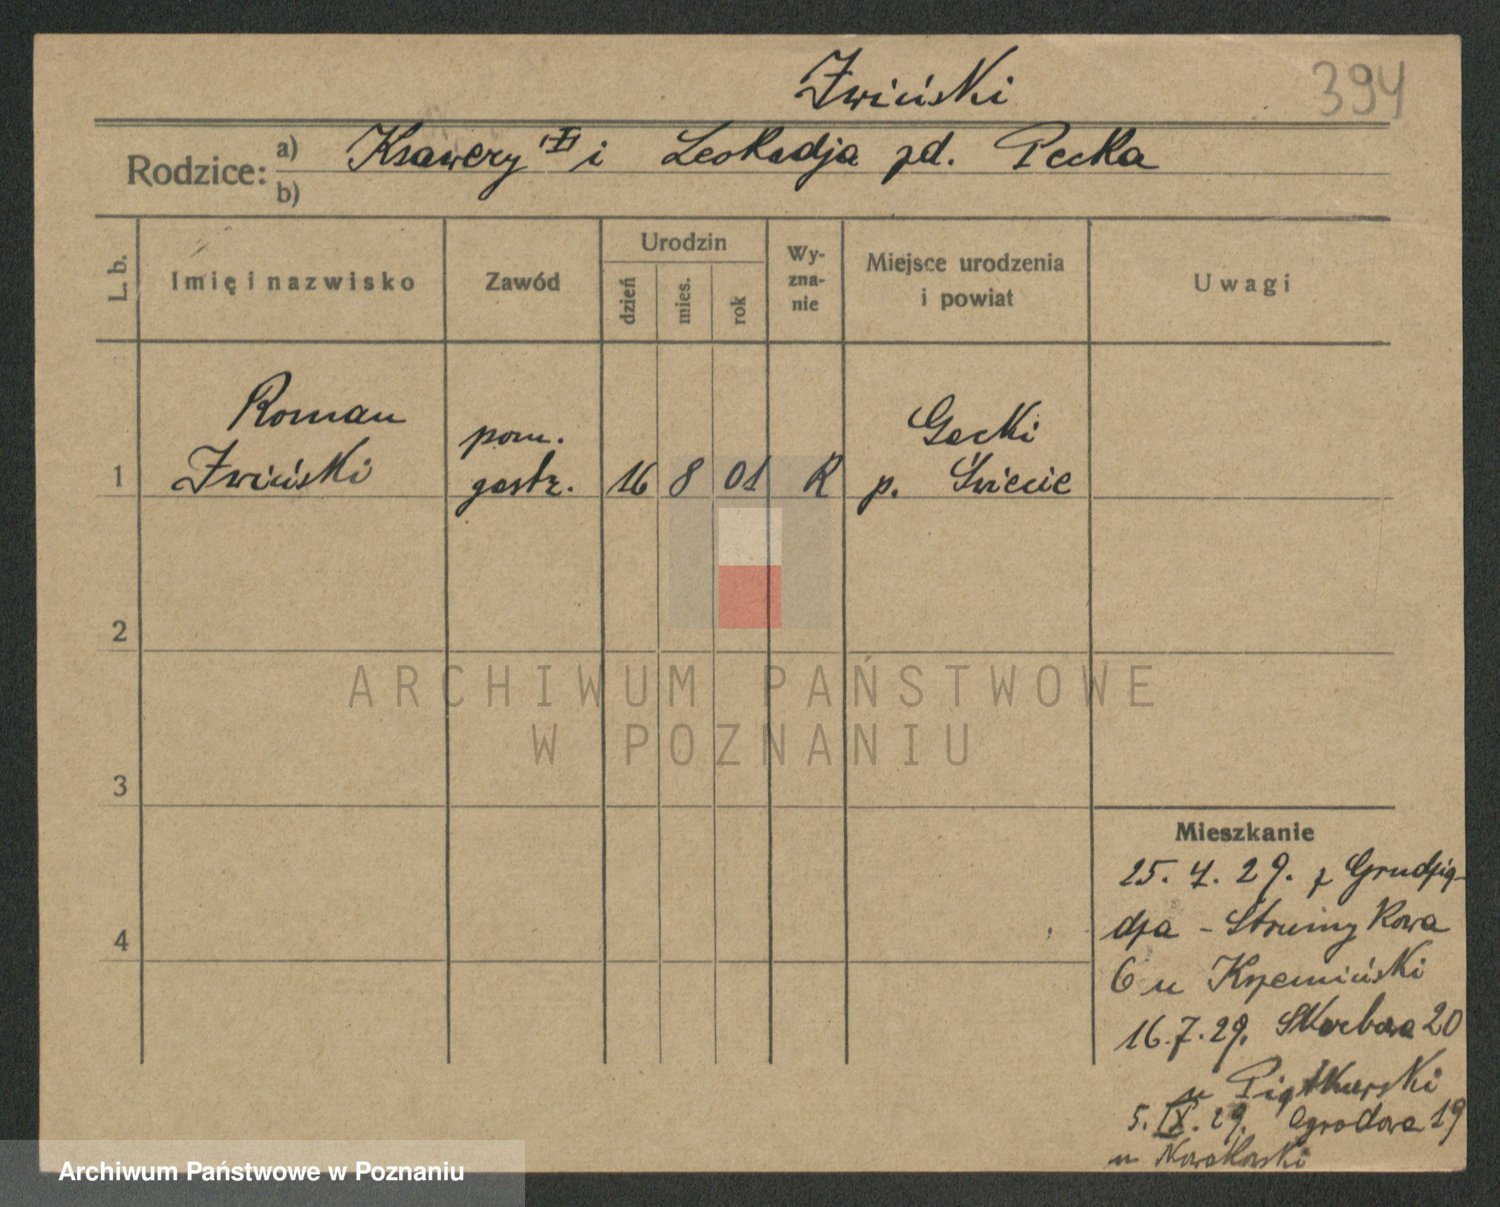 Żwiński
394
Rodzice: a) Ksawery i Leokadja zd. Pecka
b)
L. b.
Imię i nazwisko
Zawód
Urodzin
dzień
mies.
rok
Wy-
zna-
nie
Miejsce urodzenia
i powiat
Uwagi
Roman
Żwiński
pom.
gosb.
1
16 8 01 R
Gacki
p. Świecie
2
3
4
Mieszkanie
25. 4. 29. z Grudzią-
dza - Strumykowa
6 u Krzemiński
16.7.29. Skarbowa 20
u Piątkurski
5. IX. 29. Ogrodowa 19
u Nowakowski
ARCHIWUM PAŃSTWOWE
W POZNANIU
Archiwum Państwowe w Poznaniu